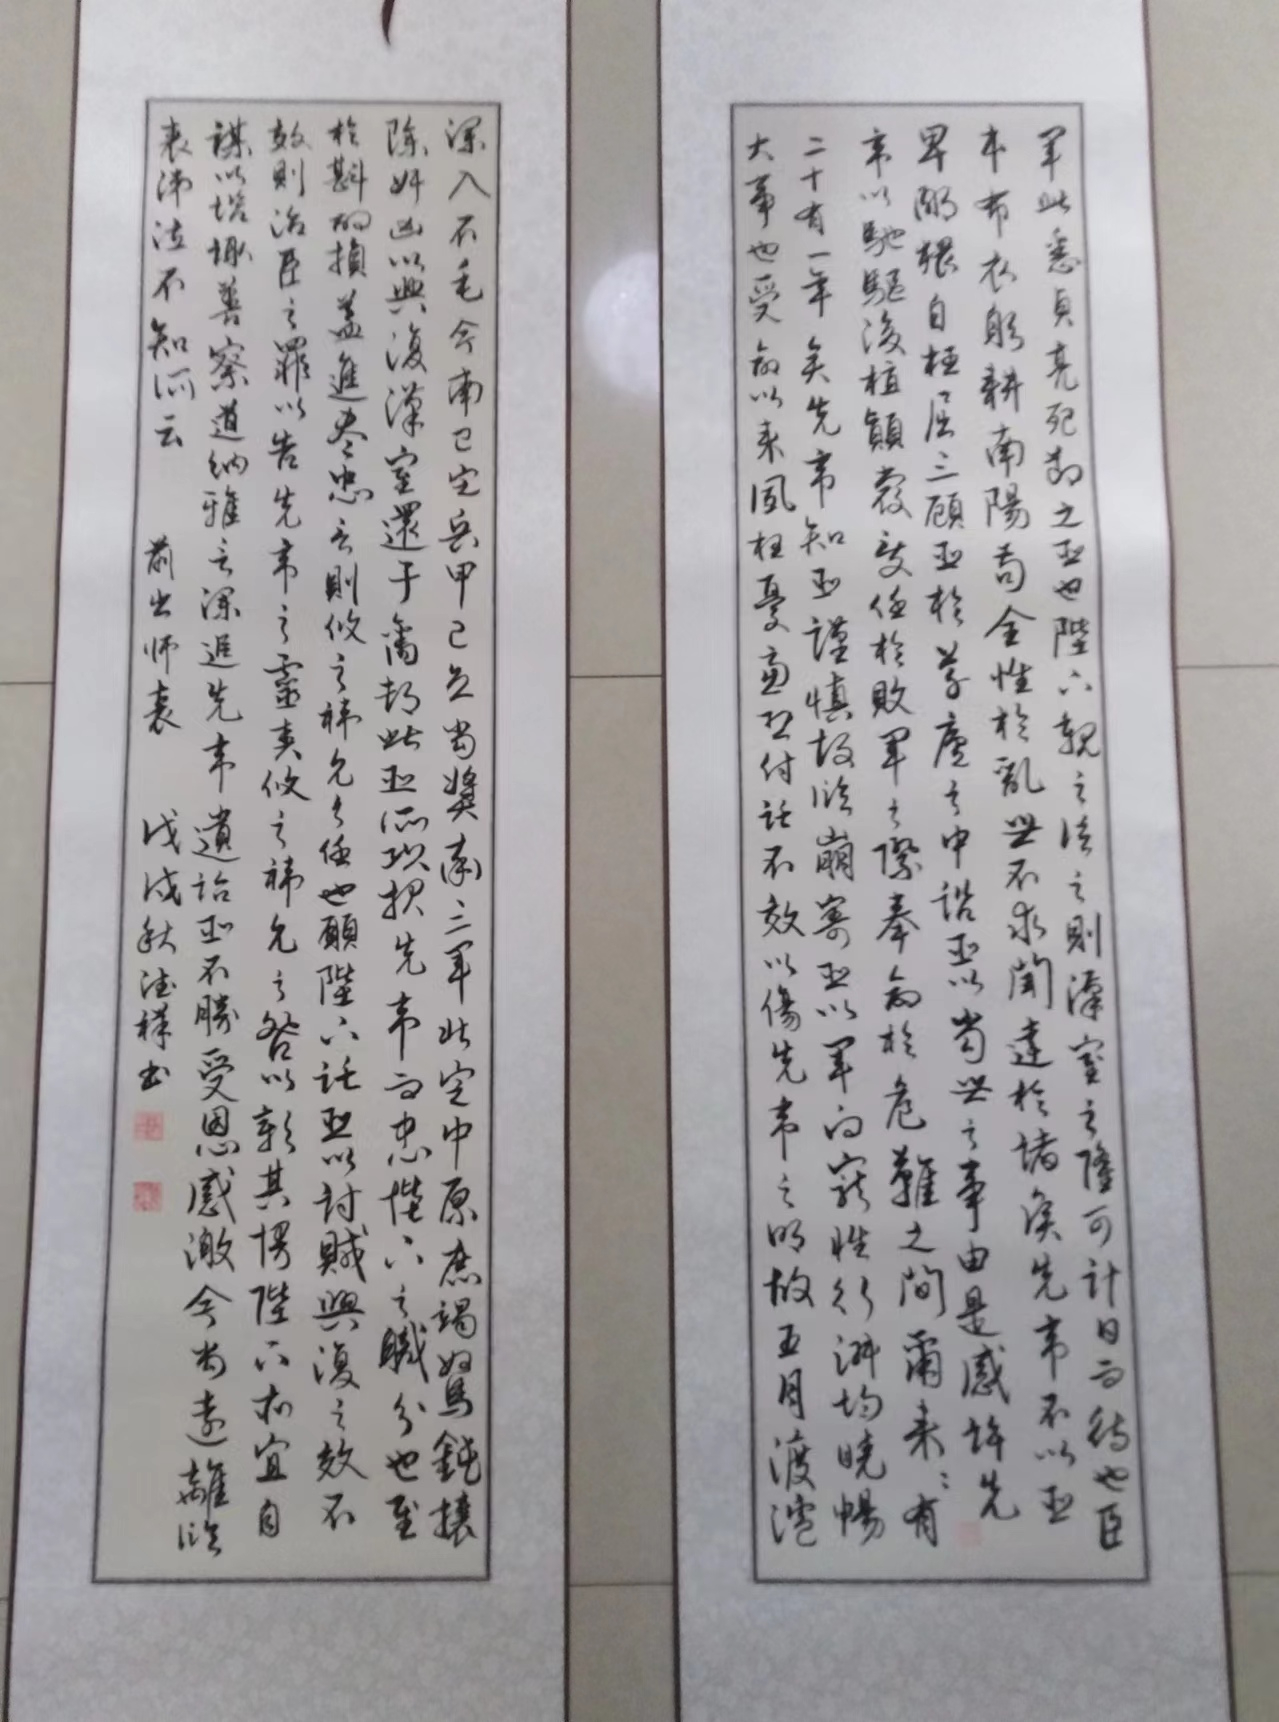 軍此悉貞亮死節之臣也陛下親之信之則漢室之隆可計日而待也臣
本布衣躬耕南陽苟全性於亂世不求聞達於諸侯先帝不以臣
卑鄙猥自枉屈三顾臣於草廬之中諮臣以當世之事由是感許先
帝以馳驅後值傾覆受任於敗軍之際奉命於危難之間爾来〻有
二十有一年矣先帝知臣謹慎故臨崩寄臣以軍向寵性行淑均曉暢
大事也受命以来夙枉憂慮恐付託不效以傷先帝之明故五月渡瀘
深入不毛今南已定兵甲已足當獎率三軍北定中原庶竭駑鈍攘
除奸凶以興復漢室還于舊都此臣所以报先帝而忠陛下之職分也至
於斟酌損益進尽忠言則攸之禕允之任也願陛下託臣以討賊興復之效不
效則治臣之罪以告先帝之靈責攸之禕允之咎以彰其慢陛下亦宜自
謀以諮諏善察道納雅言深追先帝遺詔臣不勝受恩感激今當遠離臨
表涕泣不知所云 前出师表 戊戌秋德祥书